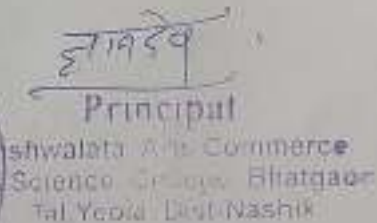 ज्ञानदेव
Principal
shwalata Arts Commerce
Science College, Bhatgaon
Tal. Yeola, Dist-Nashik